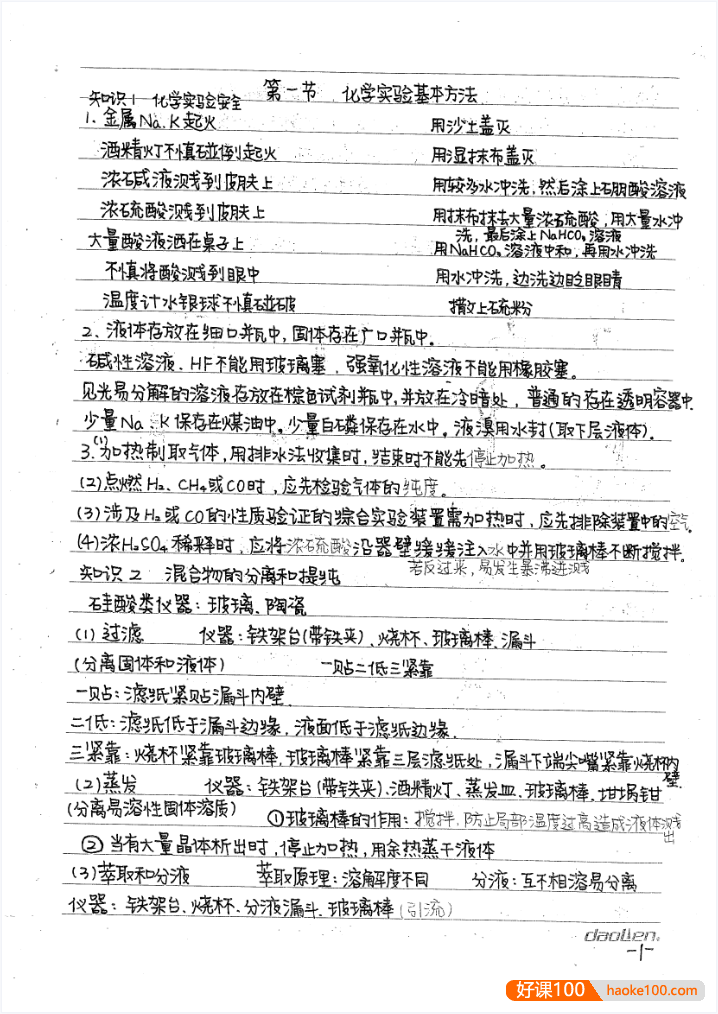 第一节 化学实验基本方法
知识1 化学实验安全
1. 金属Na、K起火 用沙土盖灭
酒精灯不慎碰倒起火 用湿抹布盖灭
浓碱液溅到皮肤上 用较多水冲洗,然后涂上硼酸溶液
浓硫酸溅到皮肤上 用抹布抹去大量浓硫酸,用大量水冲
洗,最后涂上NaHCO₃溶液
大量酸液洒在桌子上 用NaHCO₃溶液中和,再用水冲洗
不慎将酸溅到眼中 用水冲洗,边洗边眨眼睛
温度计水银球不慎碰破 撒上硫粉
2、液体存放在细口瓶中,固体存在广口瓶中。
碱性溶液、HF不能用玻璃塞,强氧化性溶液不能用橡胶塞。
见光易分解的溶液存放在棕色试剂瓶中,并放在冷暗处,普通的存在透明容器中.
少量Na、K保存在煤油中。少量白磷保存在水中。液溴用水封(取下层液体).
3.(1)加热制取气体,用排水法收集时,结束时不能先停止加热。
(2)点燃H₂、CH₄或CO时,应先检验气体的纯度。
(3)涉及H₂或CO的性质验证的综合实验装置需加热时,应先排除装置中的空气.
(4)浓H₂SO₄稀释时,应将浓硫酸沿器壁缓缓注入水中并用玻璃棒不断搅拌。
若反过来,易发生暴沸迸溅
知识2 混合物的分离和提纯
硅酸类仪器:玻璃、陶瓷
(1)过滤 仪器:铁架台(带铁夹)、烧杯、玻璃棒、漏斗
(分离固体和液体) 一贴二低三紧靠
一贴:滤纸紧贴漏斗内壁.
二低:滤纸低于漏斗边缘,液面低于滤纸边缘.
三紧靠:烧杯紧靠玻璃棒,玻璃棒紧靠三层滤纸处,漏斗下端尖嘴紧靠烧杯内
壁.
(2)蒸发 仪器:铁架台(带铁夹)、酒精灯、蒸发皿、玻璃棒、坩埚钳
(分离易溶性固体溶质) ①玻璃棒的作用:搅拌,防止局部温度过高造成液体溅
出
②当有大量晶体析出时,停止加热,用余热蒸干液体
(3)萃取和分液 萃取原理:溶解度不同 分液:互不相溶易分离
仪器:铁架台、烧杯、分液漏斗、玻璃棒(引流)
daolien.
-1-
好课100 haoke100.com